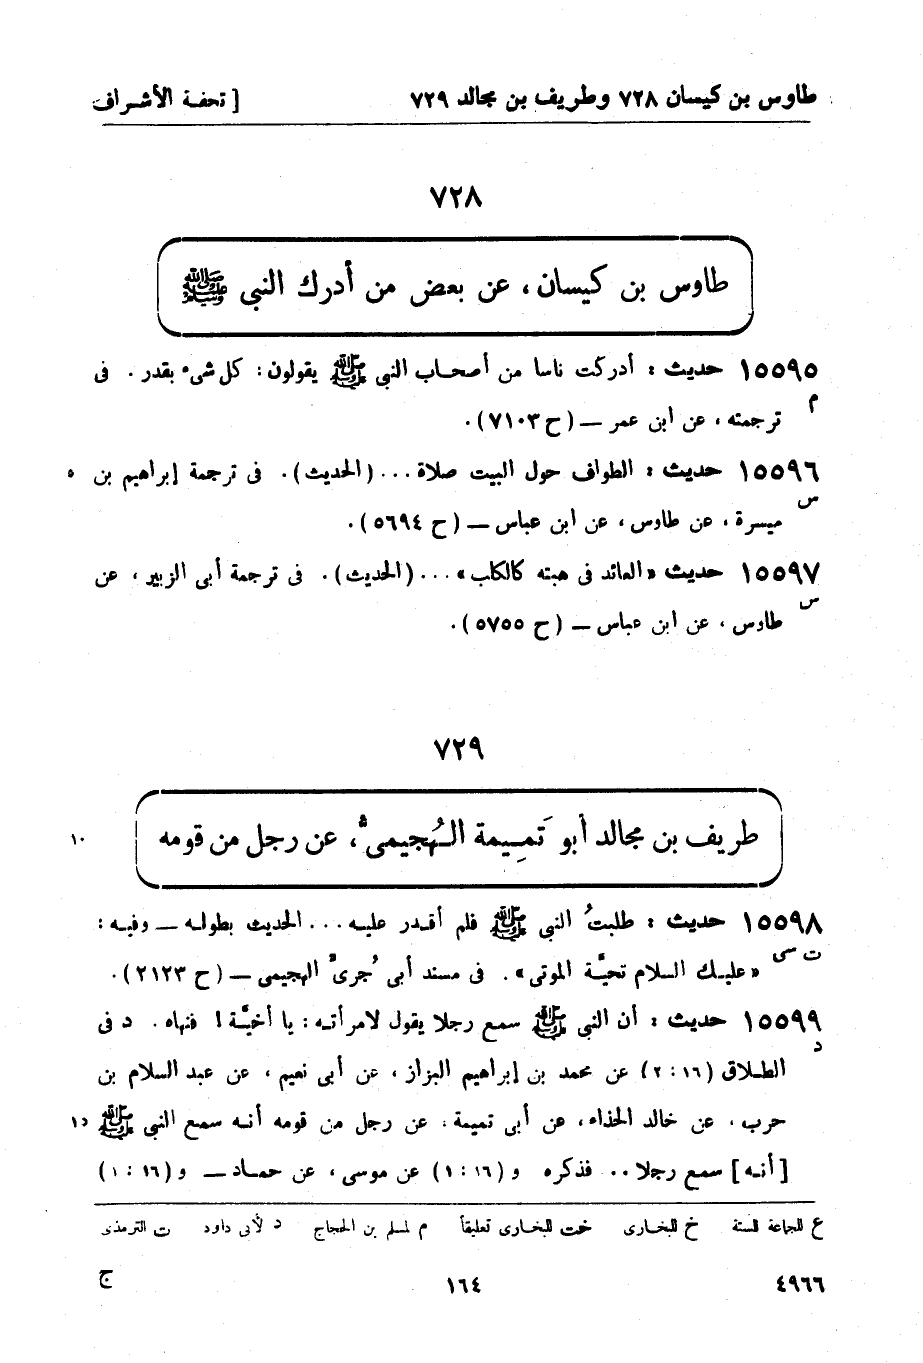 طاوس بن كيسان ٧٢٨ وطريف بن مجالد ٧٢٩ [ تحفة الأشراف
٧٢٨
طاوس بن كيسان ، عن بعض من أدرك النبي ﷺ
١٥٥٩٥ حديث : أدركت ناسا من أصحاب النبي ﷺ يقولون : كل شىء بقدر . فى
م
ترجمته ، عن ابن عمر ــ (ح ٧١٠٣) .
١٥٥٩٦ حديث : الطواف حول البيت صلاة ... (الحديث) . فى ترجمة إبراهيم بن ٥
س
ميسرة ، عن طاوس ، عن ابن عباس ــ (ح ٥٦٩٤) .
١٥٥٩٧ حديث «العائد فى هبته كالكلب» ... (الحديث) . فى ترجمة أبى الزبير ، عن
س
طاوس ، عن ابن عباس ــ (ح ٥٧٥٥) .
٧٢٩
طريف بن مجالد أبو تَمِيمة الهُجيمىّ ، عن رجل من قومه ١٠
١٥٥٩٨ حديث : طلبتُ النبي ﷺ فلم أقدر عليه ... الحديث بطوله ــ وفيه :
ت سى
«عليك السلام تحيَّة الموتى» . فى مسند أبى جُرىّ الهجيمى ــ (ح ٢١٢٣) .
١٥٥٩٩ حديث : أن النبي ﷺ سمع رجلا يقول لامرأته : يا أخيَّة ! فنهاه . د فى
د
الطلاق (١٦ : ٢) عن محمد بن إبراهيم البزاز ، عن أبى نعيم ، عن عبد السلام بن
حرب ، عن خالد الحذاء ، عن أبى تميمة ، عن رجل من قومه أنه سمع النبي ﷺ ١٥
[أنه] سمع رجلا .. فذكره و (١٦ : ١) عن موسى ، عن حماد ــ و (١٦ : ١)
ع للجماعة الستة خ للبخارى خت للبخارى تعليقاً م لمسلم بن الحجاج د لأبى داود ت الترمذى
٤٩٦٦ ١٦٤ ج